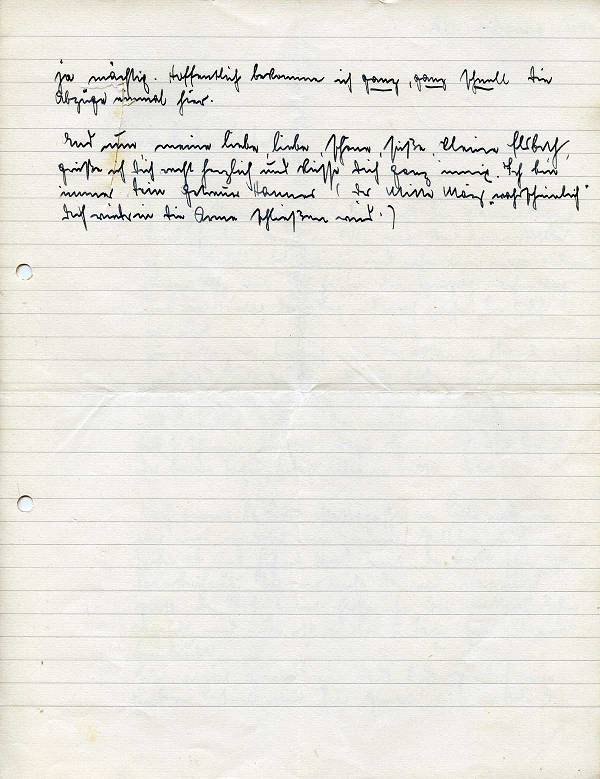 ja mächtig. Hoffentlich bekomme ich ganz, ganz schnell die
Abzüge einmal hier.
Und nun meine liebe, liebe, schöne, süße, kleine Elsbeth,
grüße ich Dich recht herzlich und küsse Dich ganz innig. Ich bin
immer Dein getreuer Hannes (der Mitte März „wahrscheinlich“
Dich wieder in die Arme schließen wird.)